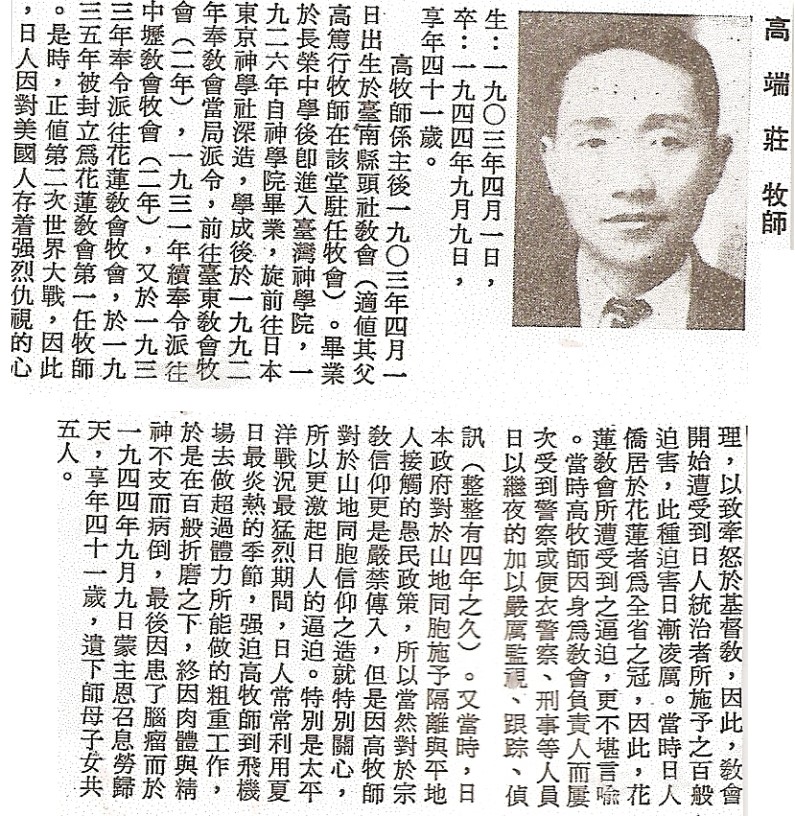 高端莊牧師
生：一九〇三年四月一日，
卒：一九四四年九月九日，
享年四十一歲。
高牧師係主後一九〇三年四月一
日出生於臺南縣頭社敎會（適値其父
高篤行牧師在該堂駐任牧會）。畢業
於長榮中學後卽進入臺灣神學院，一
九二六年自神學院畢業，旋前往日本
東京神學社深造，學成後於一九九二
年奉敎會當局派令，前往臺東敎會牧
會（二年），一九三一年續奉令派往
中壢敎會牧會（二年），又於一九三
三年奉令派往花蓮敎會牧會，於一九
三五年被封立爲花蓮敎會第一任牧師
。是時，正值第二次世界大戰，因此
，日人因對美國人存着强烈仇視的心
理，以致牽怒於基督敎，因此，敎會
開始遭受到日人統治者所施予之百般
迫害，此種迫害日漸凌厲。當時日人
僑居於花蓮者爲全省之冠，因此，花
蓮敎會所遭受到之逼迫，更不堪言喩
。當時高牧師因身爲敎會負責人而屢
次受到警察或便衣警察、刑事等人員
日以繼夜的加以嚴厲監視、跟踪、偵
訊（整整有四年之久）。又當時，日
本政府對於山地同胞施予隔離與平地
人接觸的愚民政策，所以當然對於宗
敎信仰更是嚴禁傳入，但是因高牧師
對於山地同胞信仰之造就特別關心，
所以更激起日人的逼迫。特別是太平
洋戰況最猛烈期間，日人常常利用夏
日最炎熱的季節，强迫高牧師到飛機
場去做超過體力所能做的粗重工作，
於是在百般折磨之下，終因肉體與精
神不支而病倒，最後因患了腦瘤而於
一九四四年九月九日蒙主恩召息勞歸
天，享年四十一歲，遺下師母子女共
五人。